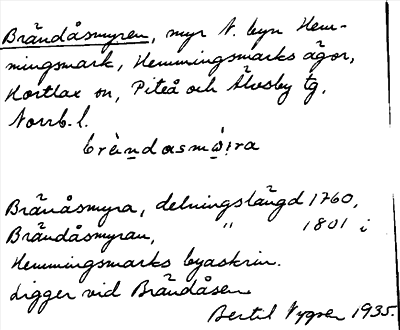 Brändåsmyren, myr N. byn Hem-
mingsmark, Hemmingsmarks ägor,
Hortlax sn, Piteå och Älvsby tg,
Norrb. l.
brä̀ndasmö̀i̯ra
Bränåsmyra, delningslängd 1760,
Brändåsmyran, " 1801 i
Hemmingsmarks byaskrin.
Ligger vid Brändåsen
Bertil 1935.